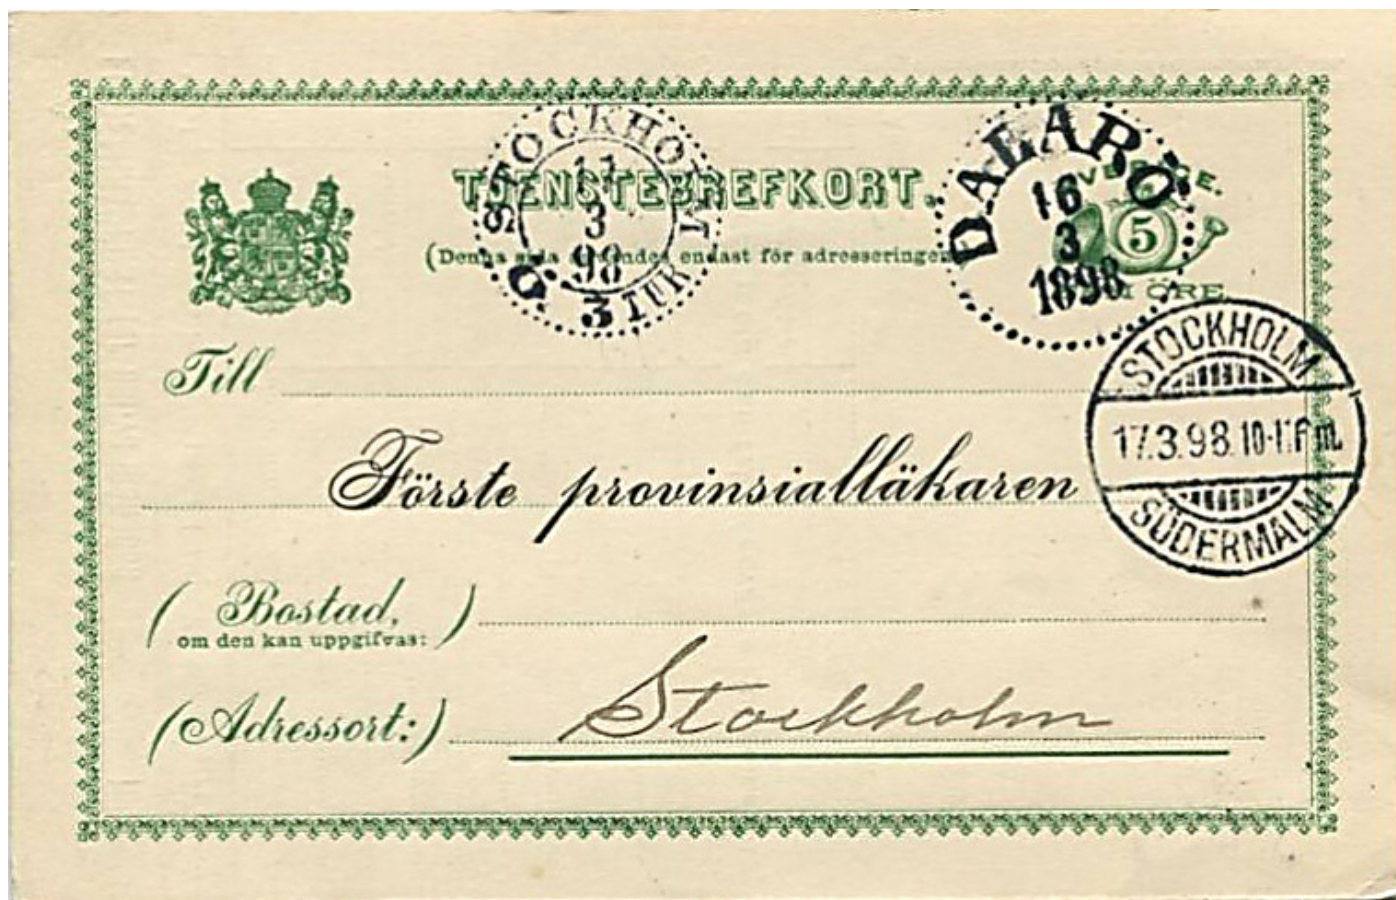 TJENSTEBREFKORT.
(Denna sida användes endast för adresseringen
SVERIGE.
5
FEM ÖRE
STOCKHOLM
17
3
98
3 TUR
DALARÖ
16
3
1898
STOCKHOLM
17.3.98.10-11 F m.
SÖDERMALM
Till
Förste provinsialläkaren
(Bostad,
om den kan uppgifvas:)
(Adressort:) Stockholm